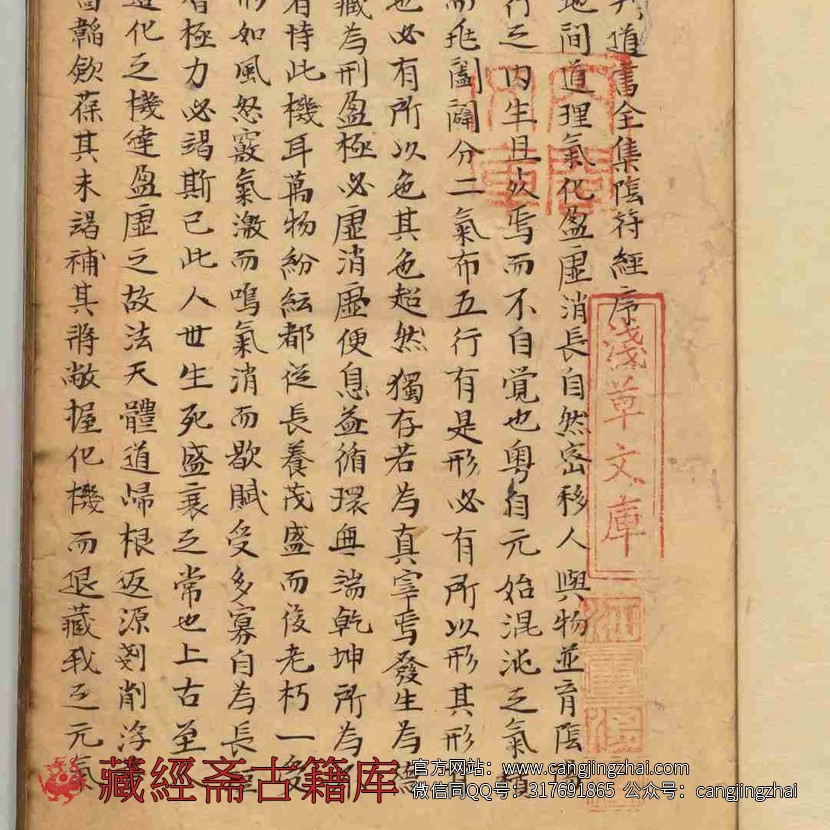 道書全集陰符經序
地間道理氣化盈虛消長自然密移人與物並育陰
行之內生且死焉而不自覚也粤自元始混沌之氣
而茁闔闢分二氣布五行有是形必有所以形其形
也必有所以色其色超然獨存若為真宰焉發生為
藏為刑盈極必虛消虛便息益循環無端乾坤所為
者恃此機耳萬物紛紜都從長養茂盛而後老朽一
形如風怒竅氣激而鳴氣消而歇賦受多寡自為長
者極力必竭斯已此人世生死盛衰之常也上古至
造化之機達盈虛之故法天體道歸根返源剗削浮
韜斂葆其未竭補其將敝握化機而退藏我之元氣
淺草文庫
藏經斋古籍库
官方网站：www.cangjingzhai.com
微信同QQ号：317691865 公众号：cangjingzhai